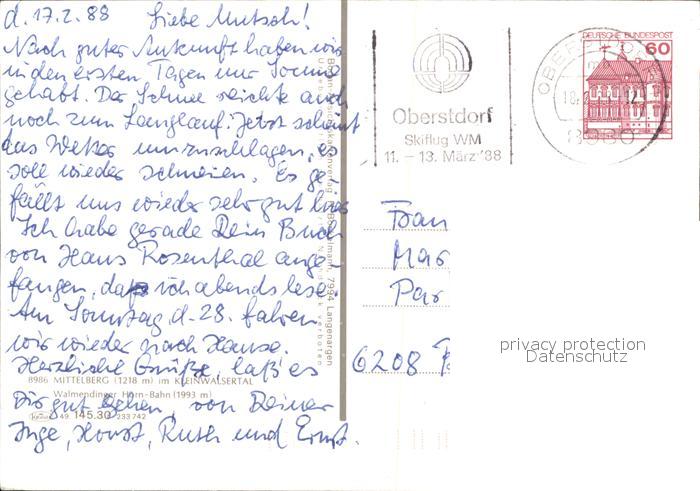 d. 17.2.88 Liebe Mutsch!
Nach guter Ankunft haben wir
in den ersten Tagen nur Sonne
gehabt. Der Schnee reichte auch
noch zum Langlauf. Jetzt scheint
das Wetter umzuschlagen, es
soll wieder schneien. Es ge-
fällt uns wieder sehr gut hier
Ich habe gerade Dein Buch
von Hans Rosenthal ange-
fangen, daß ich abends lese.
Am Sonntag d. 28. fahren
wir wieder nach Hause.
Herzliche Grüße, laß es
Dir gut gehen, von Deiner
Inge, Horst, Ruth und Ernst.
8986 MITTELBERG (1218 m) im KLEINWALSERTAL
Walmendinger Horn-Bahn (1993 m)
49 145.30 233 742
7994 Langenargen
verboten
Oberstdorf
Skiflug WM
11. - 13. März '88
DEUTSCHE BUNDESPOST
60
8980
Frau
Mar
Par
6208
privacy protection
Datenschutz